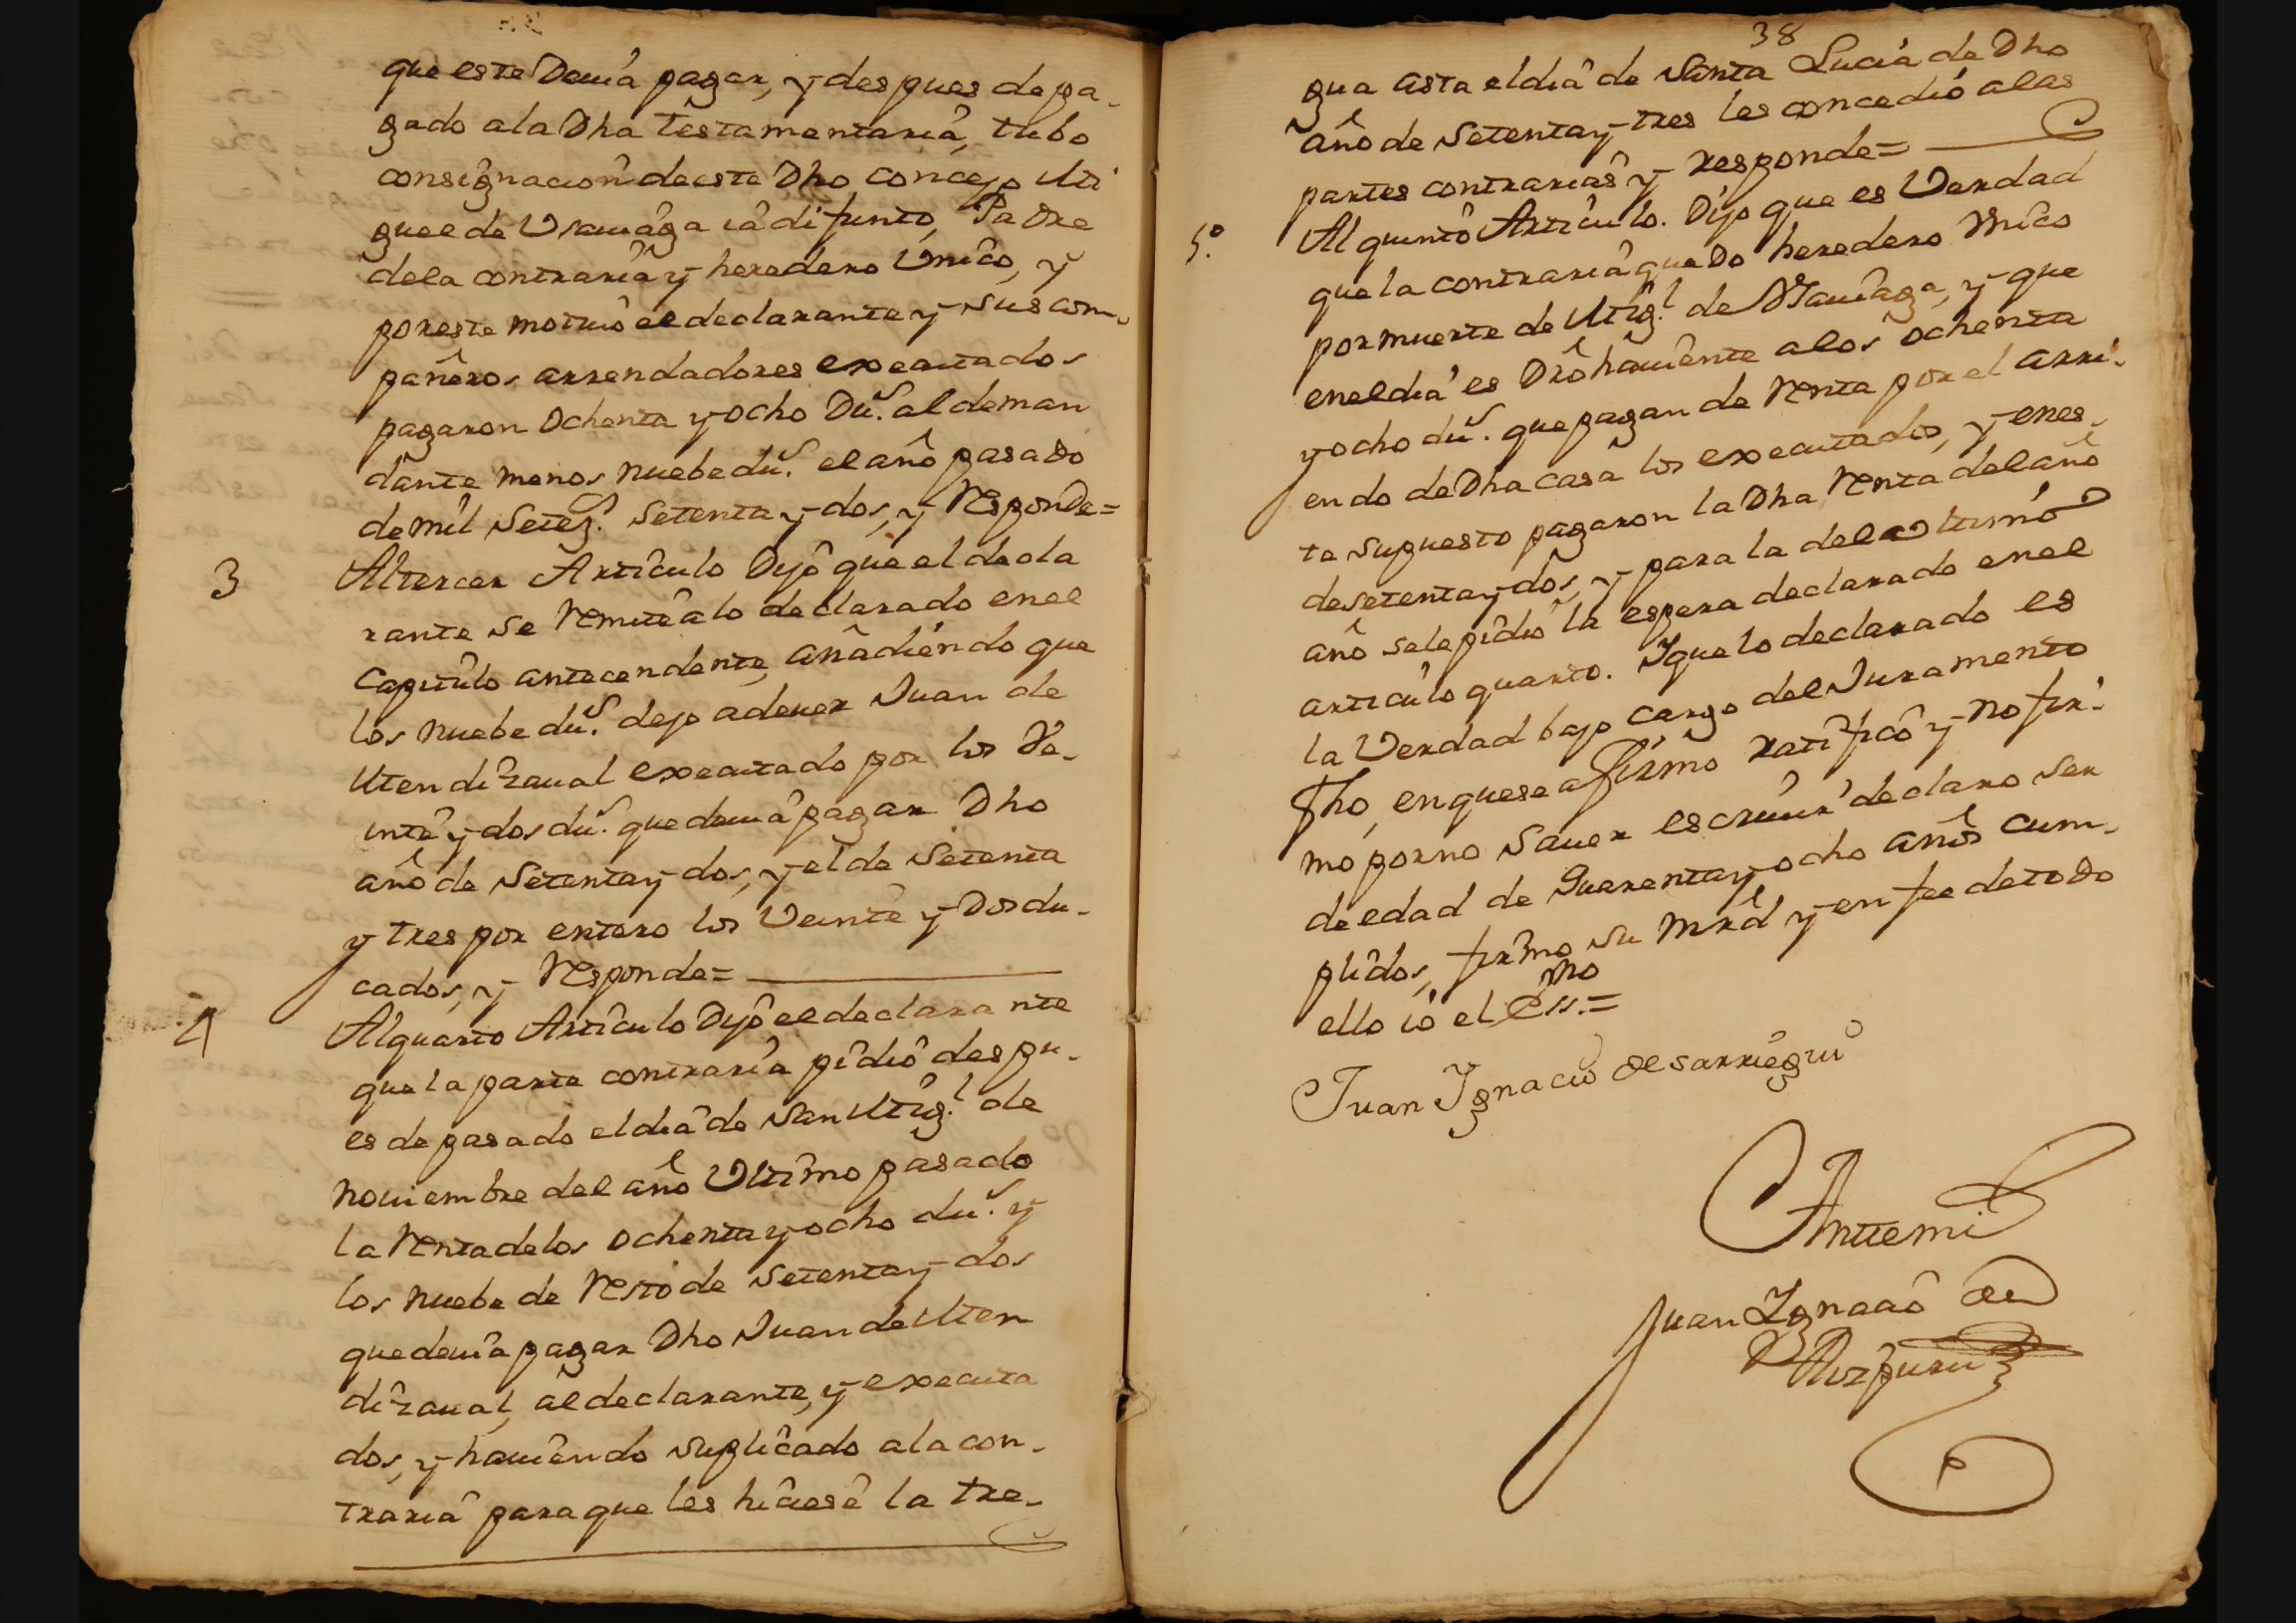 que este Deuia pagar, y despues de pa-
gado ala Dha Testamentaria, tubo
consignacion de este Dho concejo Mi
guel de Vsauiaga ia difunto, Padre
dela contraria y heredero Vnico, y
por este motiuo el declarante y sus com-
pañeros arrendadores executados
pagaron ochenta y ocho Dus. al deman
dante menos nuebe dus. el año pasado
de mil Setez.s Setenta y dos, y Responde=
3 Al tercer Articulo Dijo que el decla
rante se Remite a lo declarado en el
Capitulo antecendente, añadiendo que
los nuebe dus. dejo adeuer Juan de
Mendizaual executado por los Ve-
inte y dos dus. que deuia pagar Dho
año de Setenta y dos, y el de Setenta
y tres por entero los Veinte y Dos du-
cados, y Responde=
4 Al quarto Articulo Dijo el declarante
que la parte contraria pidio despu-
es de pasado el dia de San Mig.l de
Nouiembre del año Vltimo pasado
la Renta de los ochenta y ocho dus. y
los nuebe de Resto de Setenta y dos
que deuia pagar Dho Juan de Men
dizaual, al declarante, y executa
dos, y hauiendo suplicado a la con-
traria para que les hiciese la tre-
38
gua asta el dia de Santa Lucia de Dho
año de Setenta y tres les concedio a las
partes contrarias y responde=
5.º Al quinto Articulo. Dijo que es Verdad
que la contraria quedo heredero Vnico
por muerte de Mig.l de Vsauiaga, y que
en el dia es Dro hauiente a los ochenta
y ocho dus. que pagan de Renta por el arri-
endo de Dha casa los executados, y en es-
te supuesto pagaron la Dha Renta del año
de setenta y dos, y para la del vltimo
año se le pidio la espera declarado en el
articulo quarto. Y que lo declarado es
la Verdad bajo cargo del Juramento
Fho, en que se afirmo ratifico y no fir-
mo por no Sauer escriuir declaro ser
de edad de Quarenta y ocho años cum-
plidos, firmo su Mrd y en fee de todo
ello io el Ess.no=
Juan Ygnacio de sarriegui
Anttemi
Juan Ygnacio de
Aizpuru